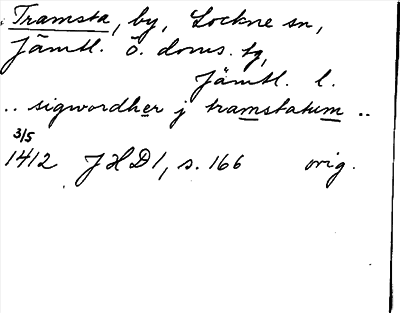 Tramsta, by, Lockne sn,
Jämtl. ö. doms. tg,
Jämtl. l.
.. sigwordher j tramstatum ..
3/5
1412 JHD 1, s. 166 orig.